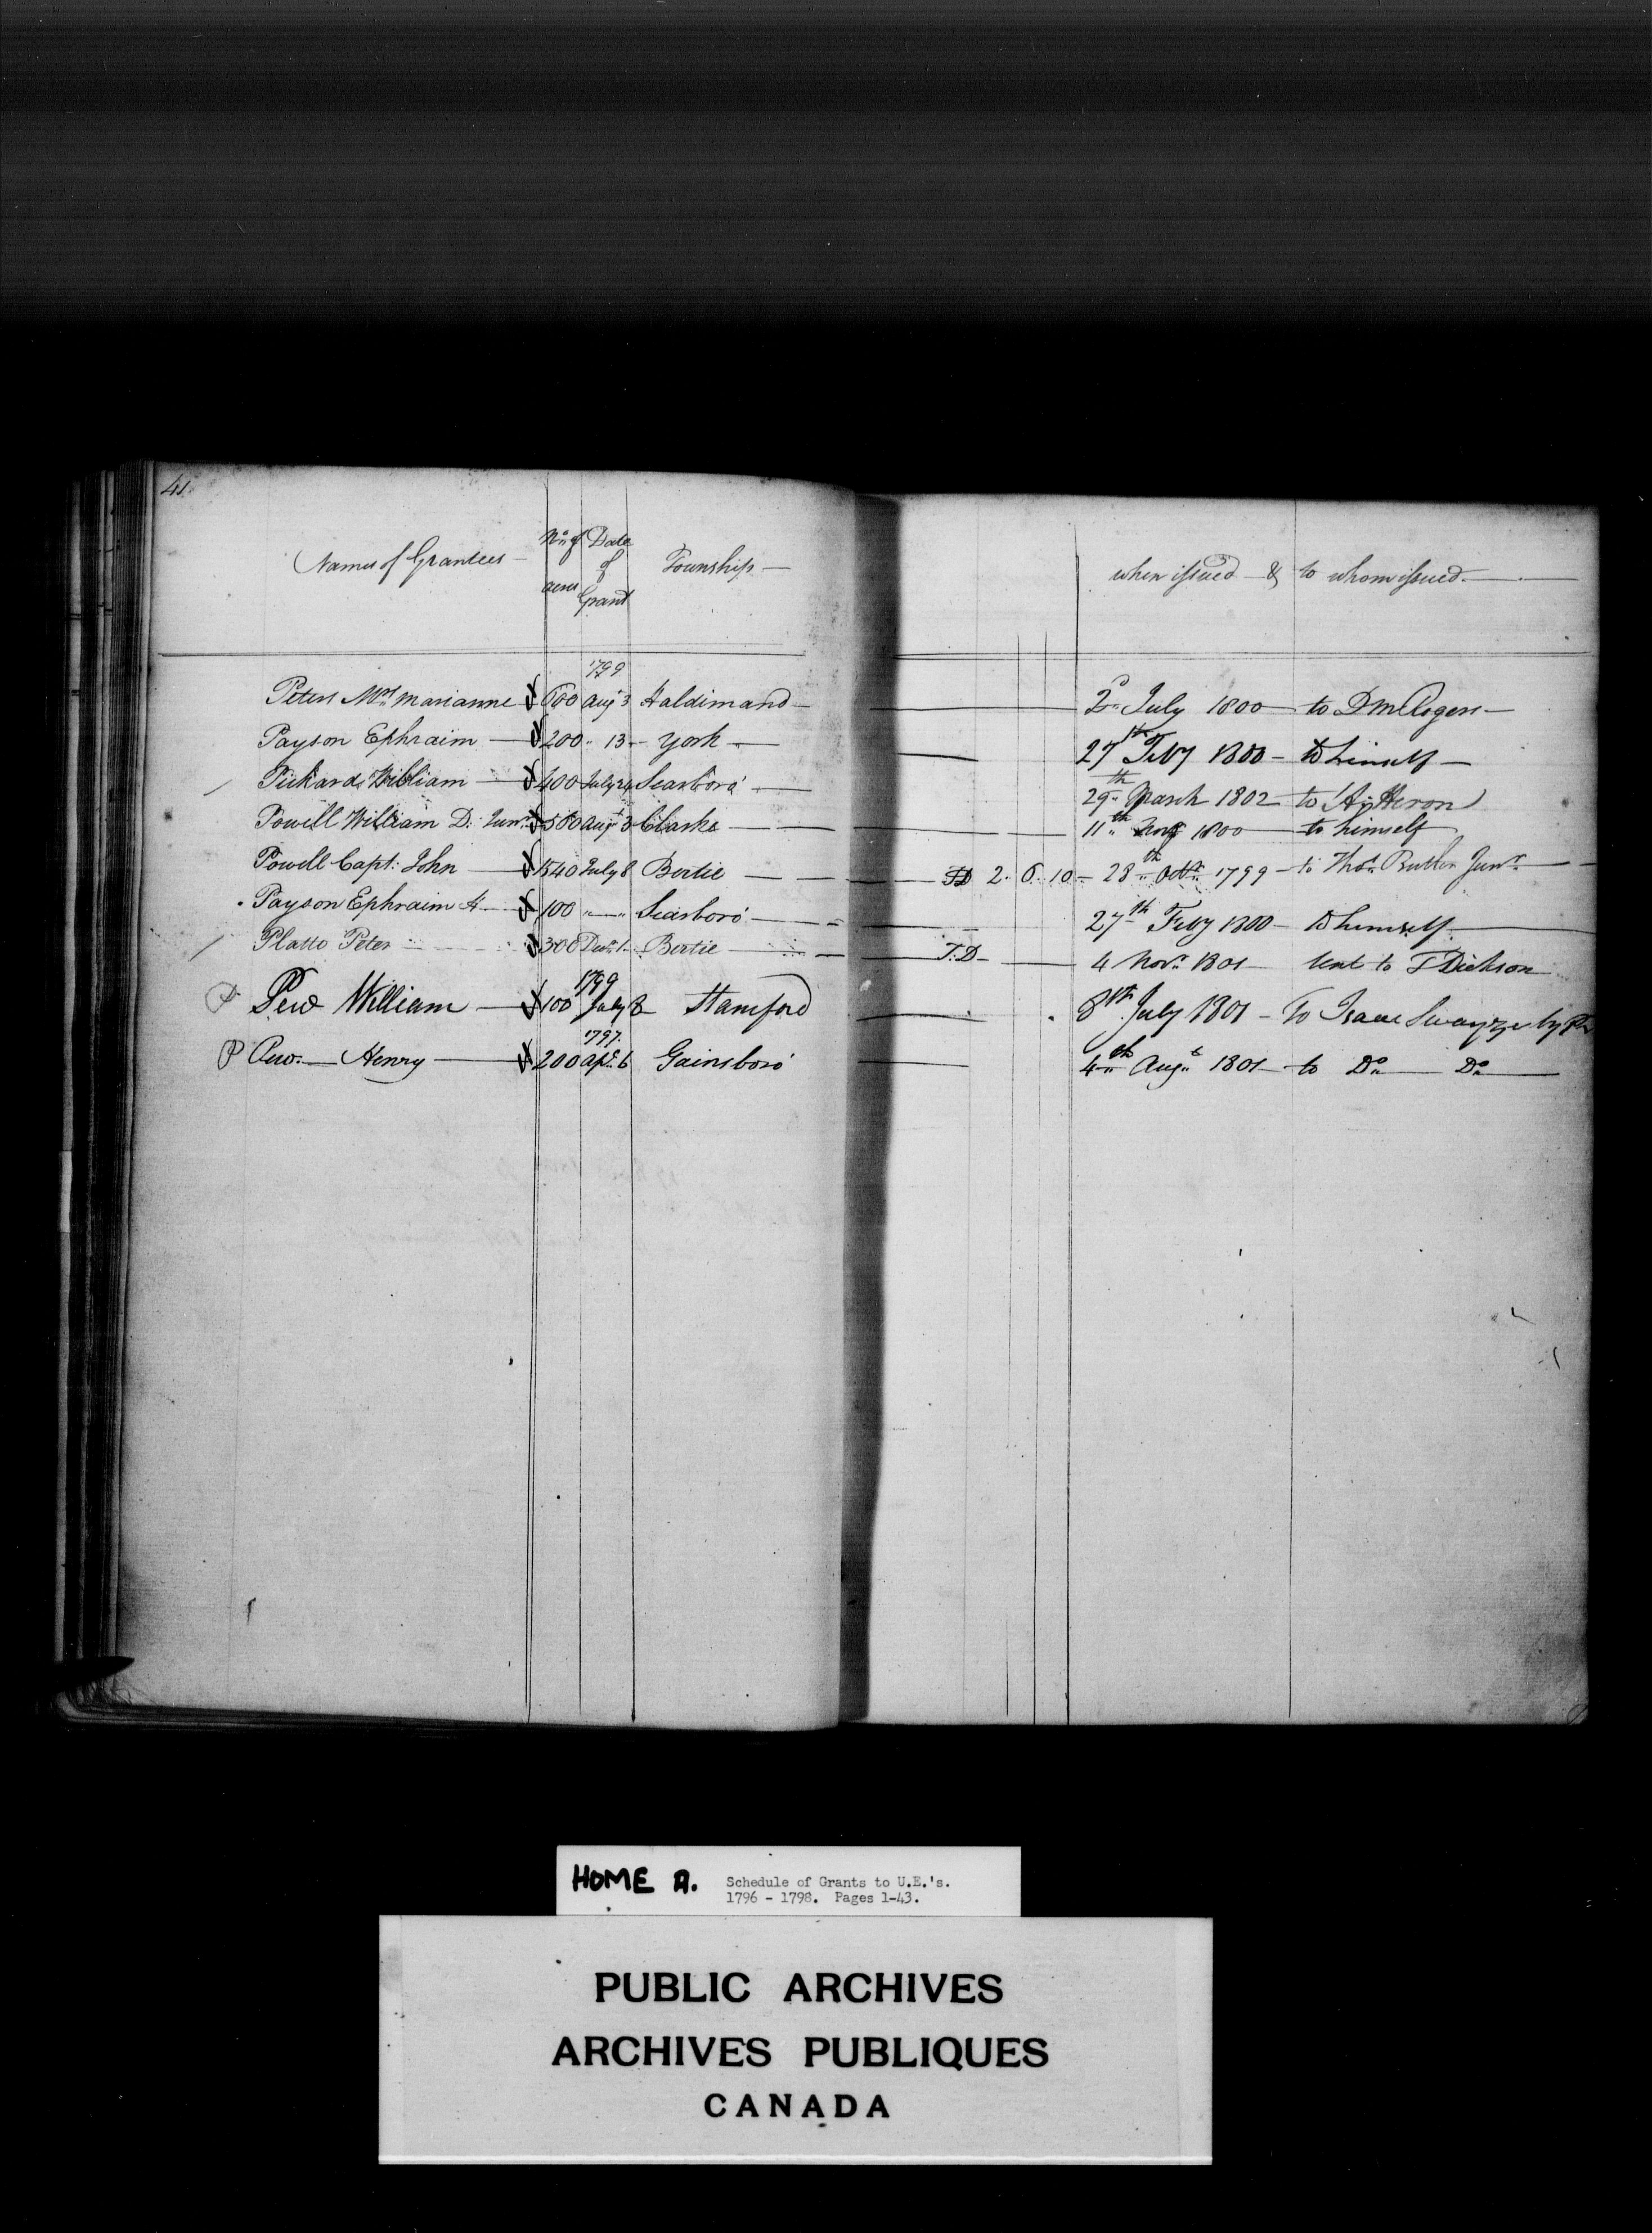 41.
Names of Grantees — No. of acres Date of Grant Township — when issued — & to whom issued. —
1799
Peters Mrs. Marianne 600 Augt 3 Haldimand — 2d. July 1800 — to D McRogers —
Payson Ephraim — 200 " 13 — York — 27th Feby 1800 — to himself —
Pickard William — 400 July 24 Scarboro' — 29th March 1802 — to A. Heron
Powell William D. Junr. 500 Augt 3 Clarke — 11th 1800 — to himself
Powell Capt. John — 1540 July 8 Bertie — TD 2. 6. 10 — 28th Octr. 1799 — to Thos. Butler Junr. —
Payson Ephraim — 100 " — " Scarboro' — 27th Feby 1800 — to himself —
Platto Peter — 300 Decr. 1 — Bertie — T.D — 4 Novr. 1801 — sent to T Dickson
1799
P Pew William — 100 July 8 Stamford — 8th July 1801 — To Isaac Swayze by
1797.
P Pew. — Henry — 200 Apl. 6 Gainsboro' — 4th Augt. 1801 — to Do. — Do. —
HOME A. Schedule of Grants to U.E.'s.
1796 - 1798. Pages 1-43.
PUBLIC ARCHIVES
ARCHIVES PUBLIQUES
CANADA